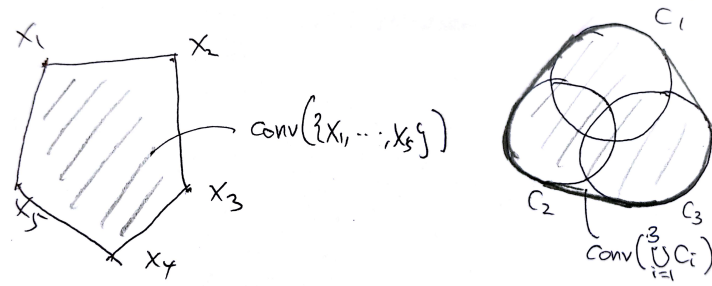 X₁
X₂
X₃
X₄
X₅
conv({X₁, ..., X₅})
C₁
C₂
C₃
conv(⋃ᵢ₌₁³ Cᵢ)